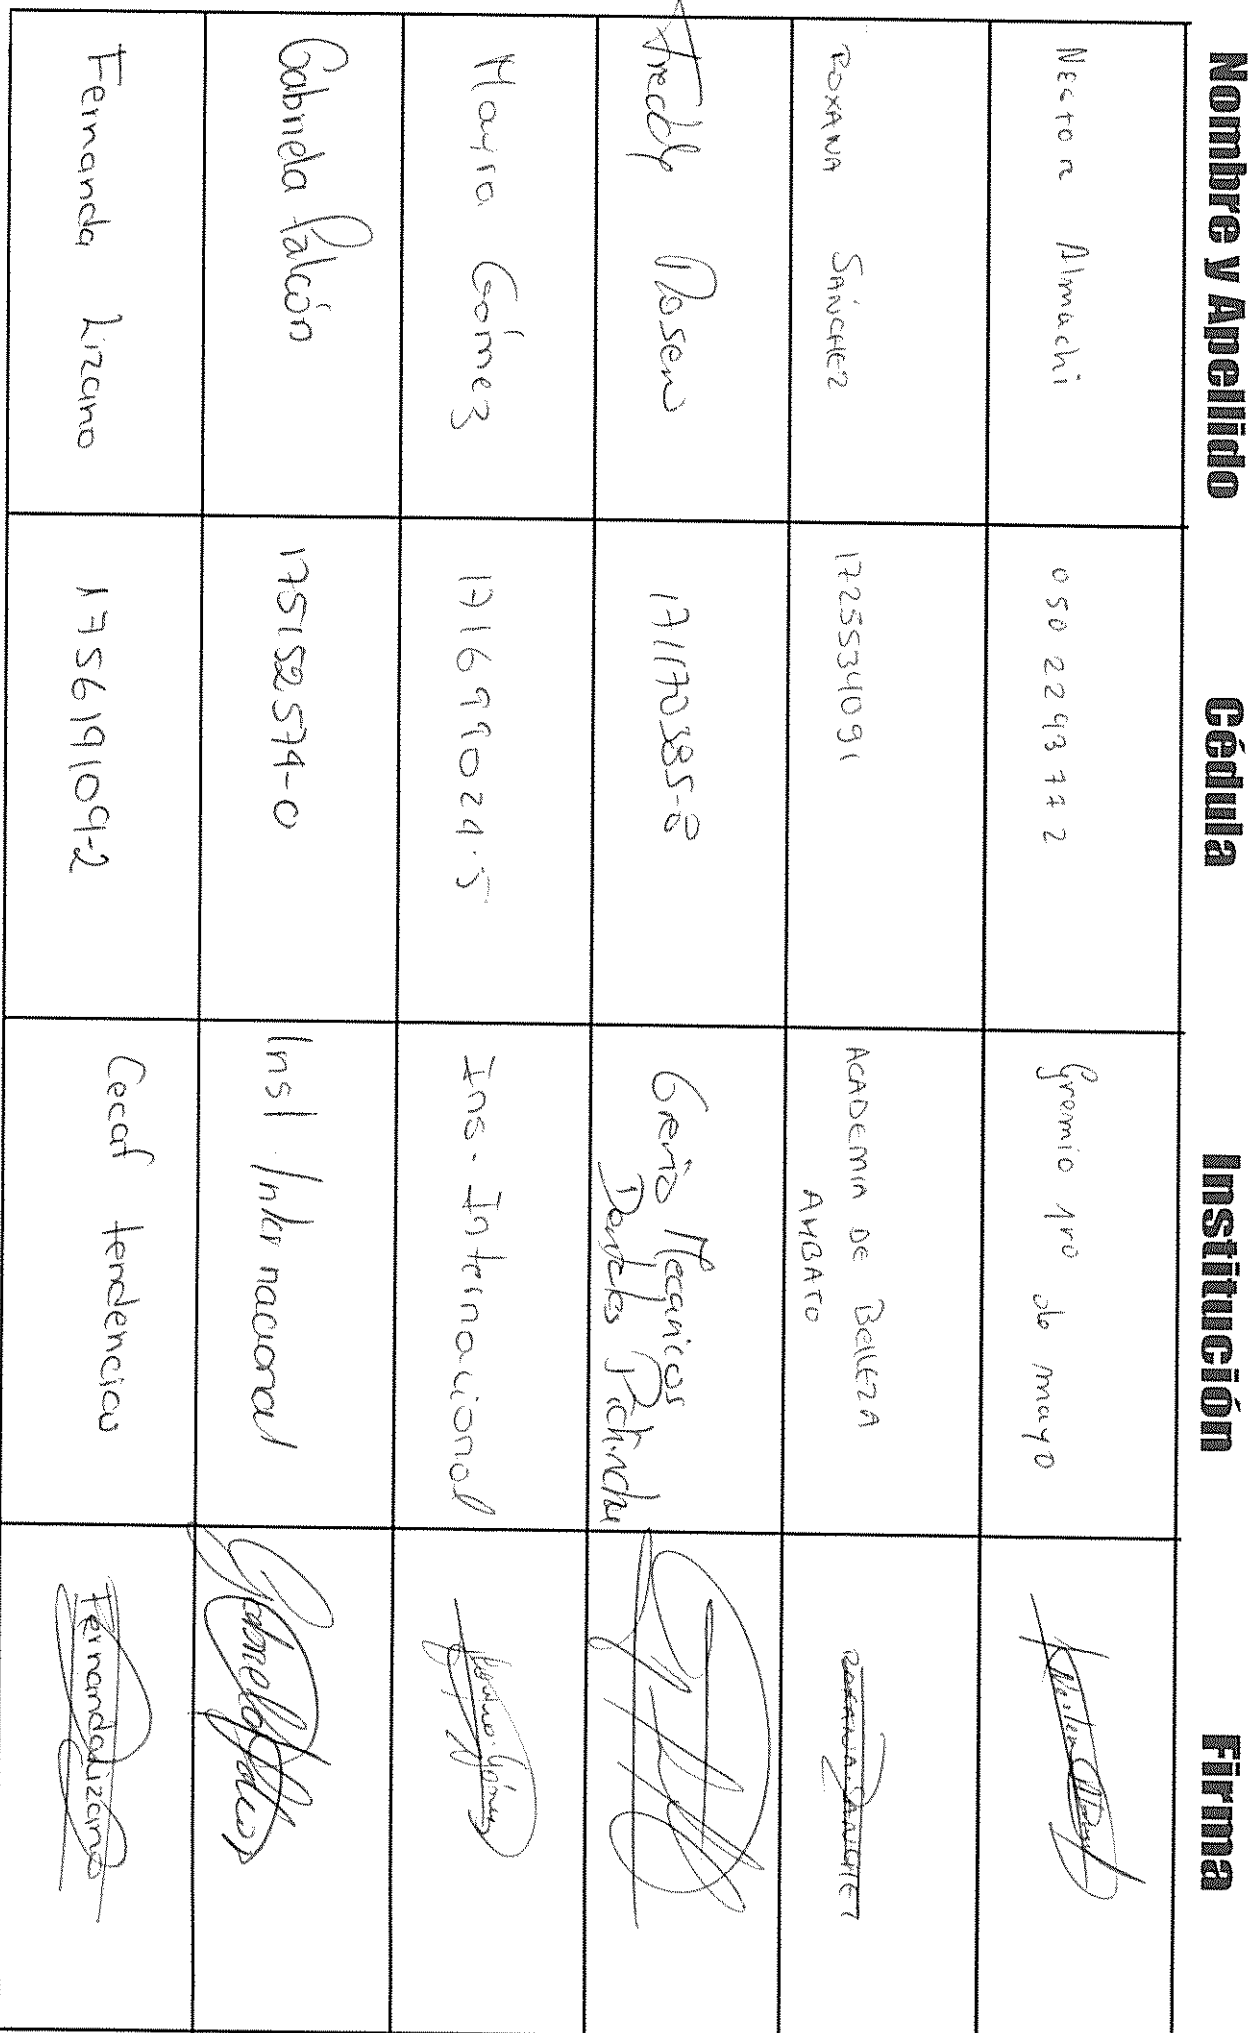 Nombre y Apellido Cédula Institución Firma
Nestor Almachi 0502243772 Gremio 1ro de mayo
ROXANA SÁNCHEZ 1725534091 ACADEMIA DE BELLEZA
AMBATO ROXANA SANCHEZ
Freddy 171170385-8 Gremio Mecánicos
Pichincha
Mayra Gómez 171699024-5 Ins. Internacional Mayra Gómez
Gabriela Falcón 175152574-0 Inst. Internacional Gabriela Falcón
Fernanda Lizano 175619109-2 Cecaf tendencias Fernanda Lizano